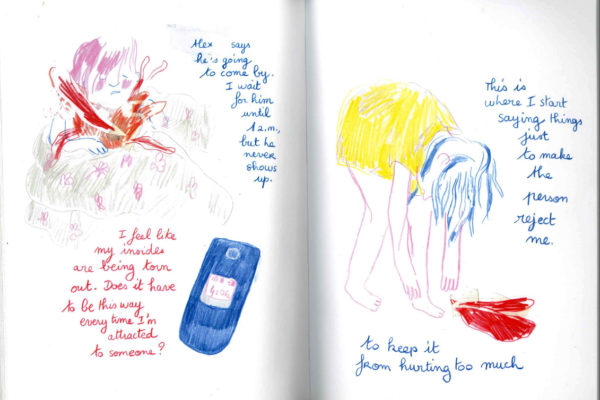 Alex says
he's going
to come by.
I wait
for him
until
1 a.m.,
but he
never
shows
up.
I feel like
my insides
are being torn
out. Does it have
to be this way
every time I'm
attracted
to someone?
This is
where I start
saying things
just
to make
the
person
reject
me.
to keep it
from hurting too much